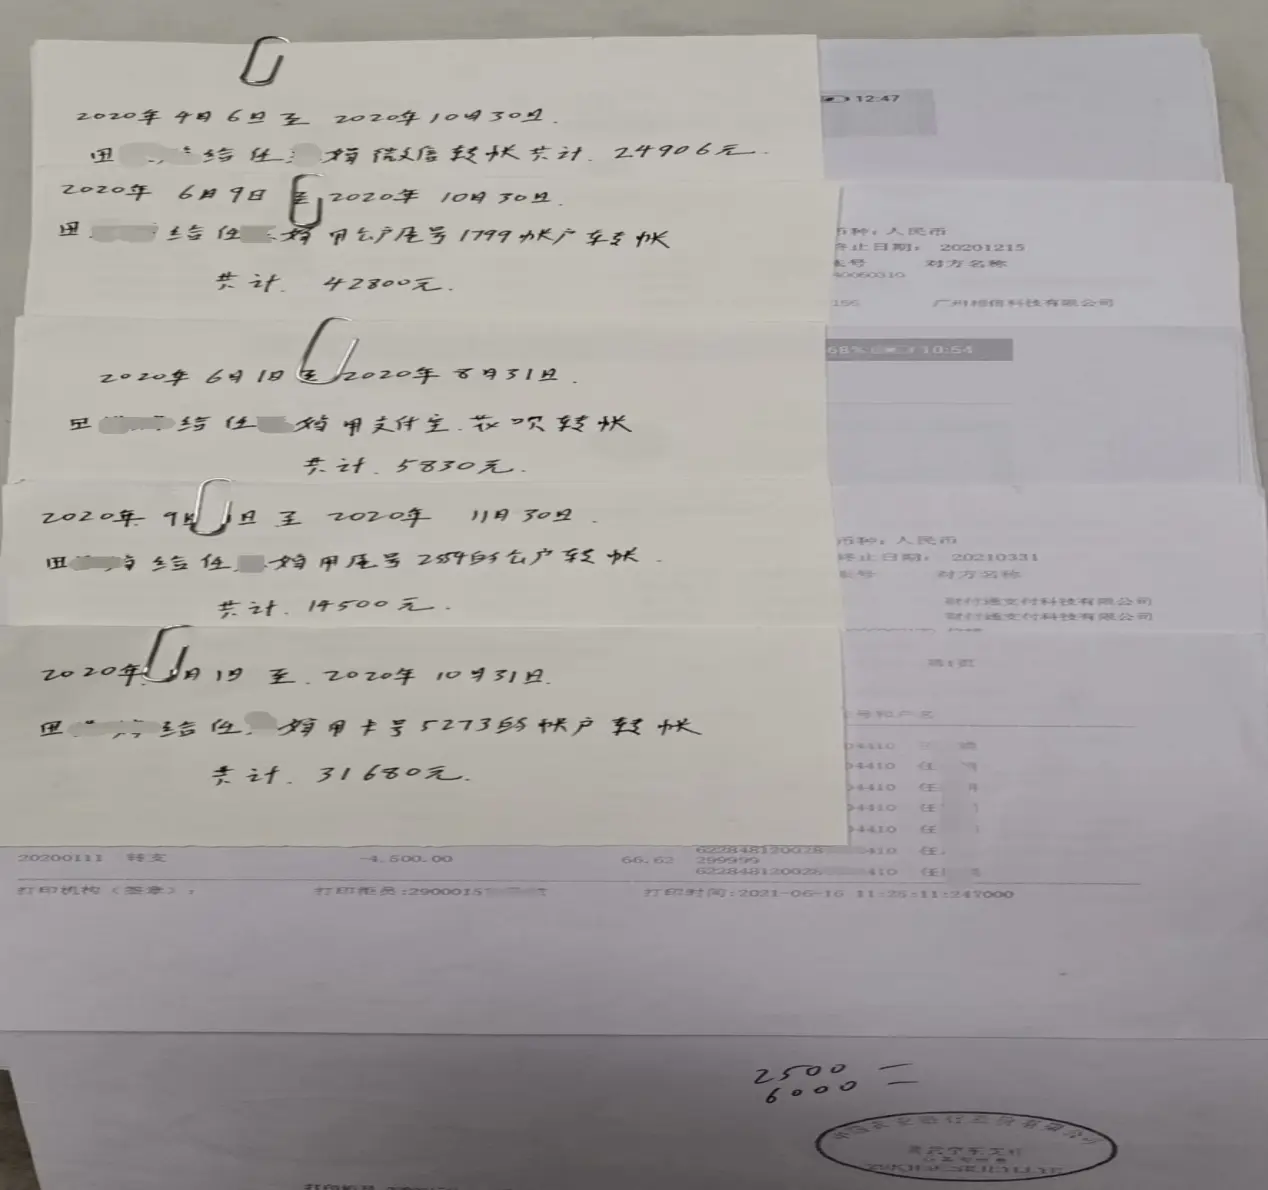 2020年9月6日至2020年10月30日.
田 给任 娟微信转帐共计.24906元.
12:47
2020年6月9日至2020年10月30日.
田 给任 娟用公户尾号1799帐户转帐
共计.42800元.
币种:人民币
终止日期: 20201215
账号 对方名称
40060310
广州 科技有限公司
2020年6月1日至2020年8月31日.
田 给任 娟用支付宝.花呗转帐
共计.5830元.
68% 10:54
2020年9月 日至2020年11月30日.
田 给任 娟用尾号2559的公户转帐.
共计.14500元.
币种:人民币
终止日期: 20210331
账号 对方名称
财付通支付科技有限公司
财付通支付科技有限公司
第1页
2020年 月1日至.2020年10月31日.
田 给任 娟用卡号5273的帐户转帐
共计.31680元.
号和户名
04410 任
04410 任
04410 任
04410 任
04410 任
622848120028 410 任
20200111 转支 -4,500.00 66.62 299999
622848120028 410 任
打印机构(签章): 打印柜员:2900015 打印时间:2021-06-16 11:25:11:247000
2500
6000